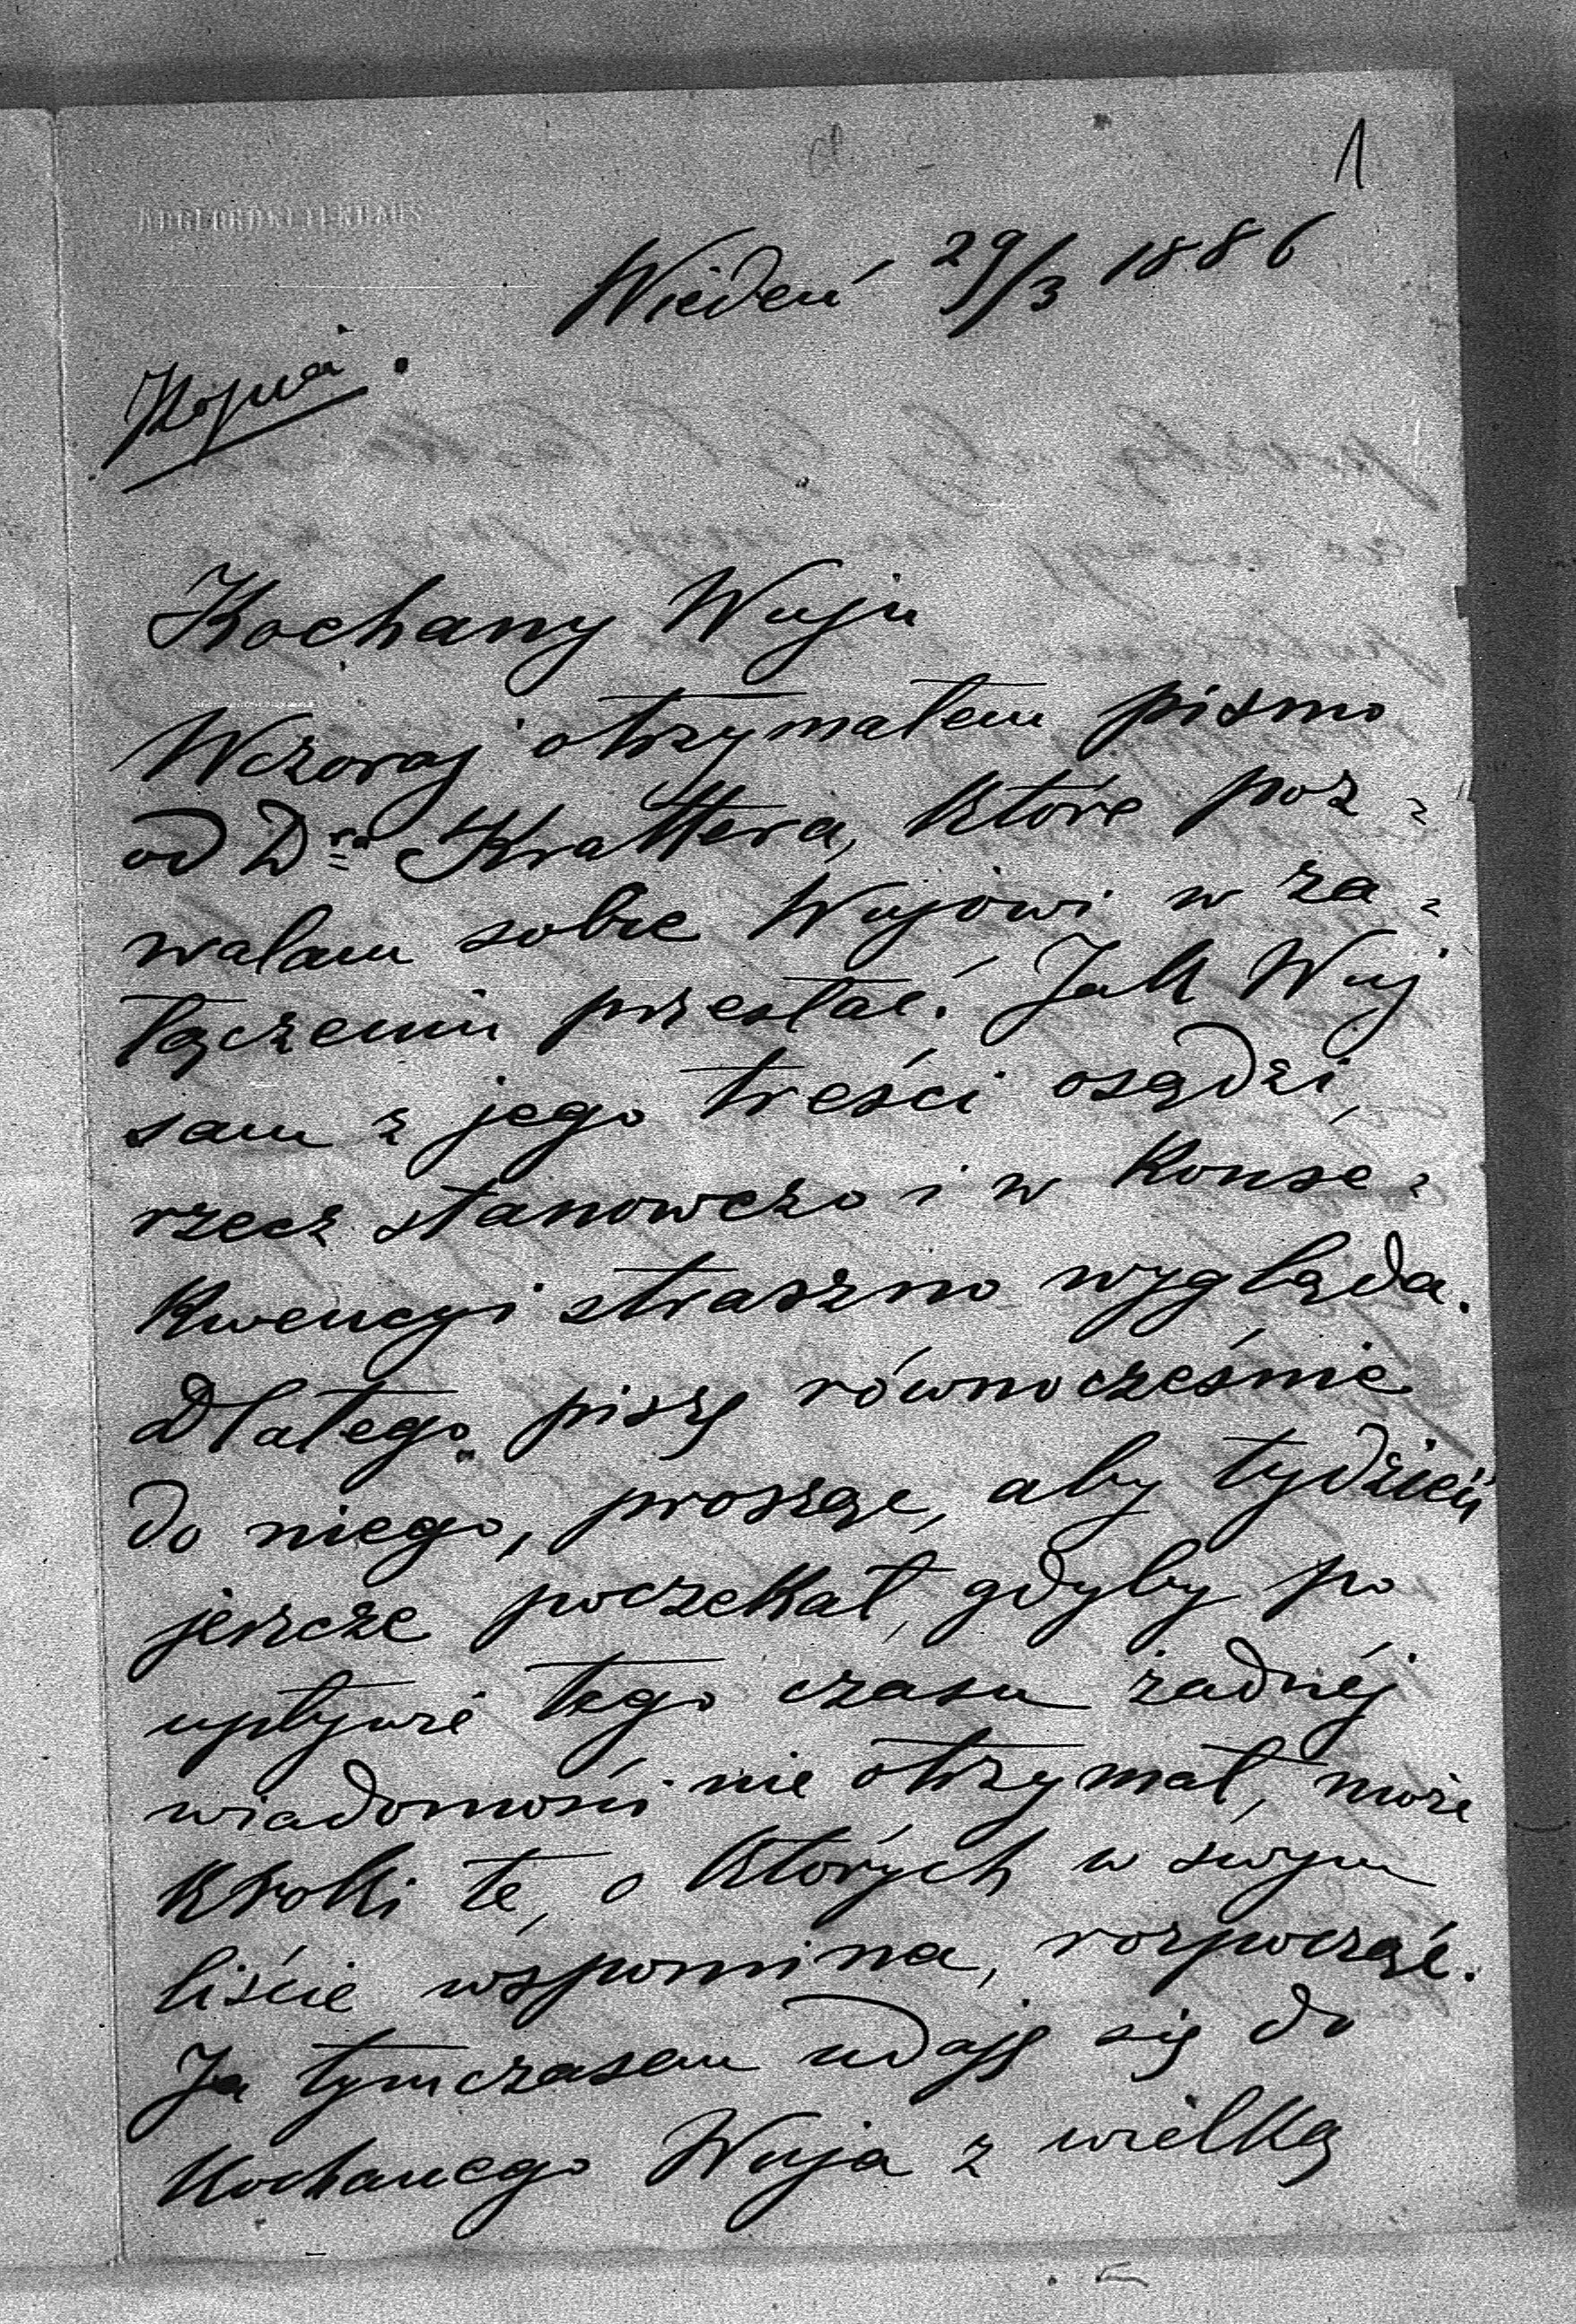 1
ABGEORDNETENHAUS
Wiedeń 29/3 1886
Kopia.
Kochany Wuju
Wczoraj otrzymałem pismo
od Dra Krattera, które poz=
walam sobie Wujowi w za=
łączeniu przesłać. Jak Wuj
sam z jego treści osądzi,
rzecz stanowczo i w konse=
kwencyi straszno wygląda.
Dlatego piszę równocześnie
do niego, prosząc, aby tydzień
jeszcze poczekał, gdyby po
upływie tego czasu żadnéj
wiadomości nie otrzymał, może
kroki te, o których w swym
liście wspomina, rozpocząć.
Ja tymczasem udaję się do
Kochanego Wuja z wielką